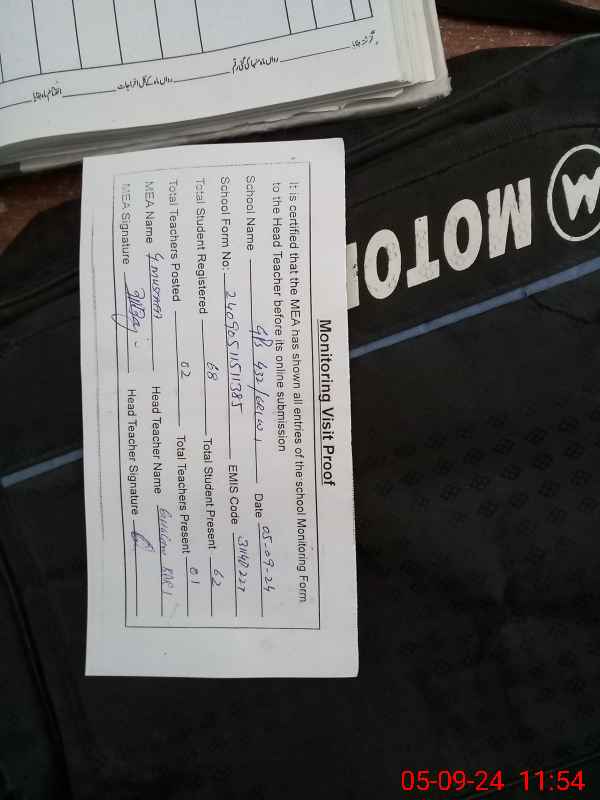 Monitoring Visit Proof
It is certified that the MEA has shown all entries of the school Monitoring Form
to the Head Teacher before its online submission
School Name GPS 432/6R(W) Date 05-09-24
School Form No: 24090511511385 EMIS Code 31140227
Total Student Registered 68 Total Student Present 62
Total Teachers Posted 02 Total Teachers Present 01
MEA Name Head Teacher Name
MEA Signature Head Teacher Signature
MOTOR
05-09-24 11:54